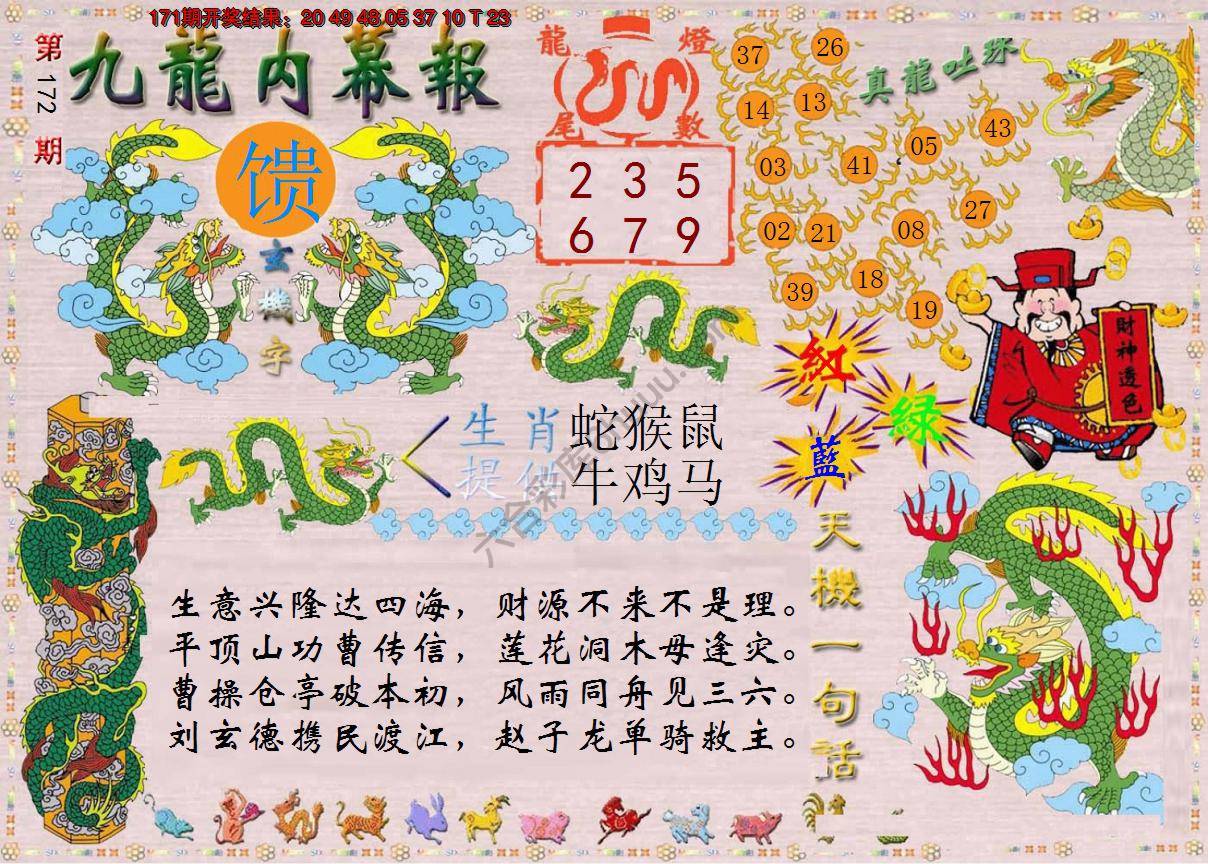 171期开奖结果：20 49 48 05 37 10 T 23
第172期
九龍内幕報
馈
玄機字
龍燈尾數
2 3 5
6 7 9
真龍吐珠
37 26
14 13
03 41 05 43
02 21 08 27
39 18 19
財神透色
紅
綠
藍
生肖 蛇猴鼠
提供 牛鸡马
天機一句話
生意兴隆达四海，财源不来不是理。
平顶山功曹传信，莲花洞木母逢灾。
曹操仓亭破本初，风雨同舟见三六。
刘玄德携民渡江，赵子龙单骑救主。